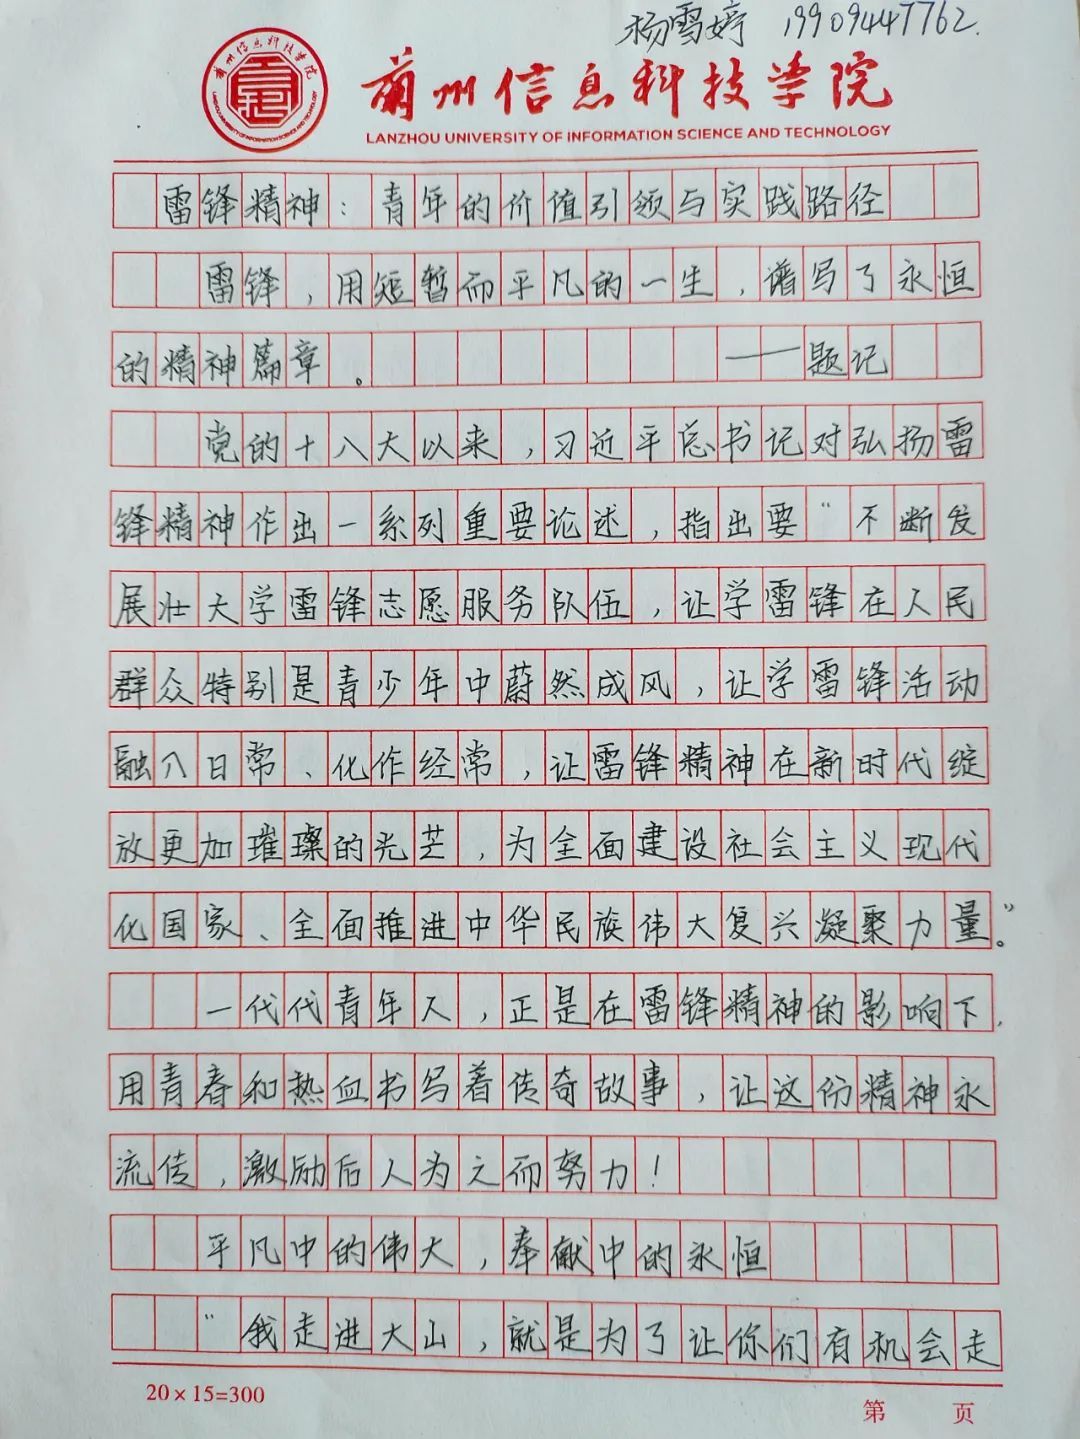 杨雪婷 19909447762.
兰州信息科技学院
兰州信息科技学院
LANZHOU UNIVERSITY OF INFORMATION SCIENCE AND TECHNOLOGY
LANZHOU UNIVERSITY OF INFORMATION SCIENCE AND TECHNOLOGY
雷锋精神：青年的价值引领与实践路径
雷锋，用短暂而平凡的一生，谱写了永恒
的精神篇章。 ——题记
党的十八大以来，习近平总书记对弘扬雷
锋精神作出一系列重要论述，指出要“不断发
展壮大学雷锋志愿服务队伍，让学雷锋在人民
群众特别是青少年中蔚然成风，让学雷锋活动
融入日常、化作经常，让雷锋精神在新时代绽
放更加璀璨的光芒，为全面建设社会主义现代
化国家、全面推进中华民族伟大复兴凝聚力量。”
一代代青年人，正是在雷锋精神的影响下，
用青春和热血书写着传奇故事，让这份精神永
流传，激励后人为之而努力！
平凡中的伟大，奉献中的永恒
“我走进大山，就是为了让你们有机会走
20×15=300
第 页